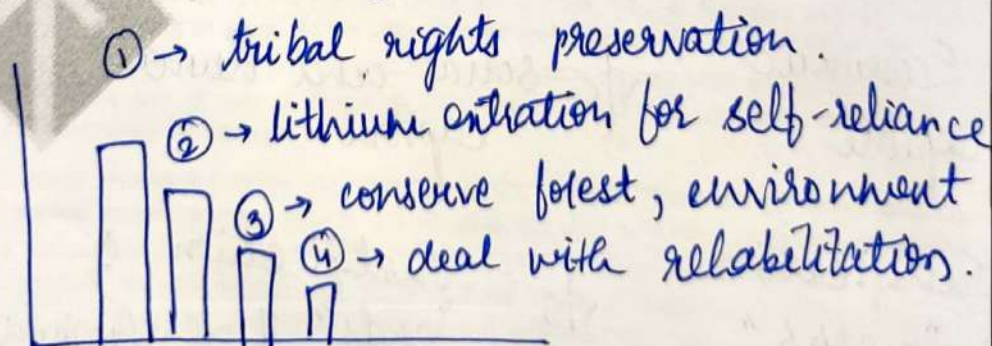 ① → tribal rights preservation.
② → lithium extration for self-reliance
③ → conserve forest, environment
④ → deal with rehabilitation.